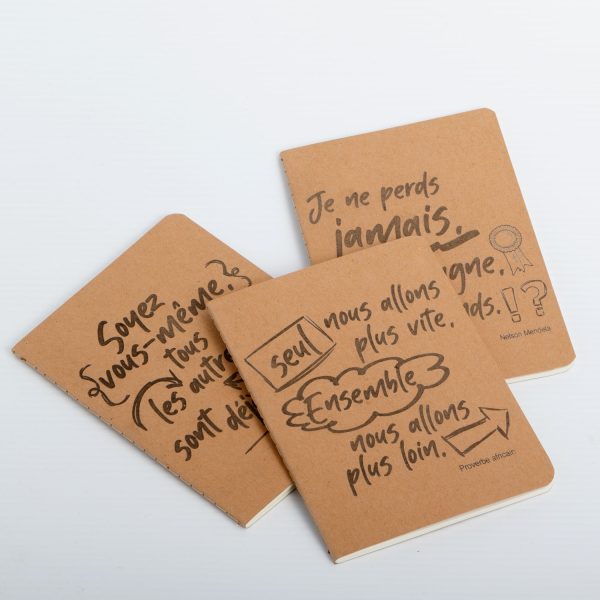 Je ne perds
jamais,
gne,
ds.!?
Nelson Mendela
Soyez
vous-même,
tous
les autre
sont déj
seul nous allons
plus vite,
Ensemble
nous allons
plus loin.
Proverbe africain